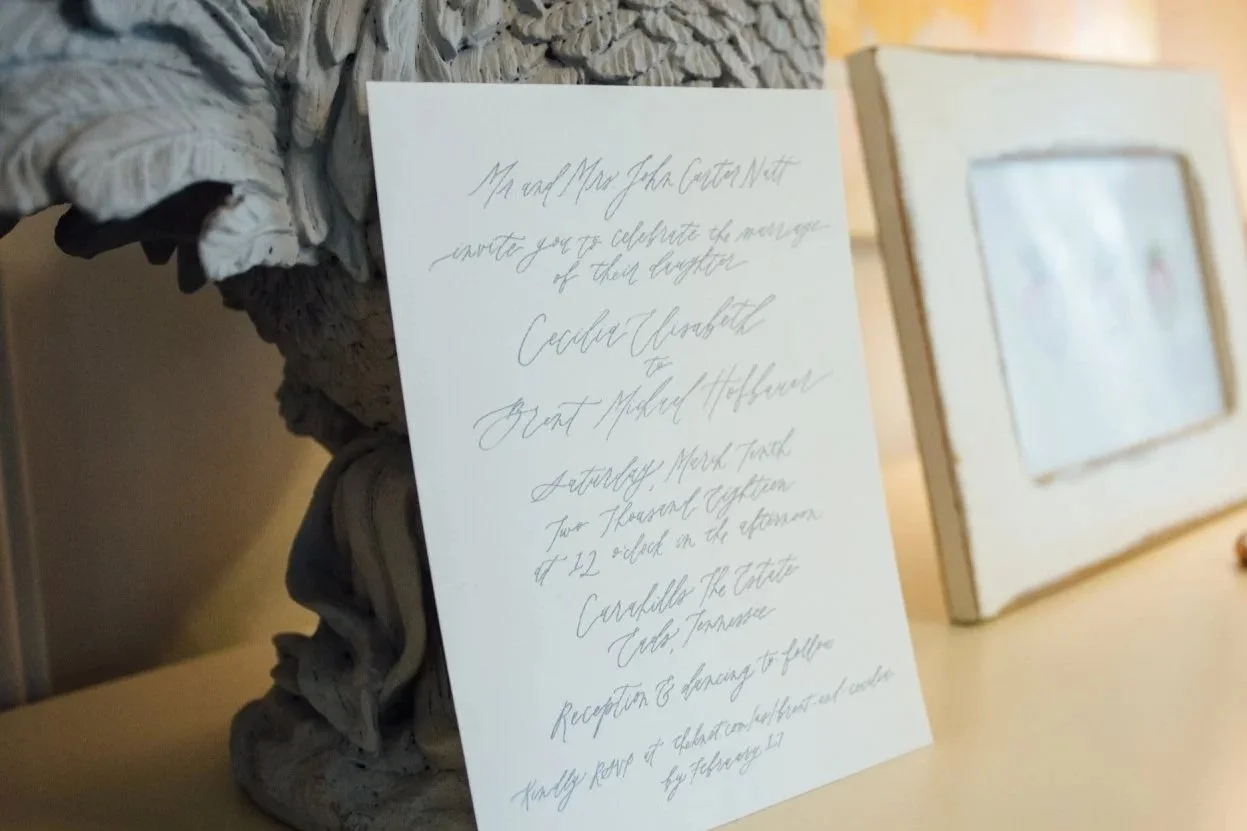 Mr and Mrs John Carter Nutt
invite you to celebrate the marriage
of their daughter
Cecilia Elisabeth
to
Brent Michael Hofbauer
Saturday, March Tenth
Two Thousand Eighteen
at 12 o'clock in the afternoon
Carahills The Estate
Eads, Tennessee
Reception & dancing to follow
Kindly RSVP at theknot.com/us/brent-and-cecilia
by February 17